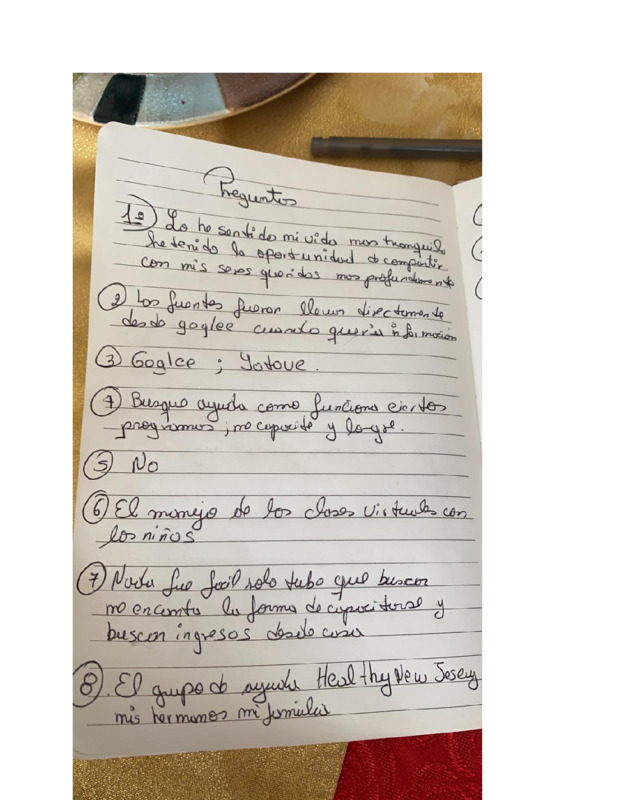 Preguntas
1º Lo he sentido mi vida mas tranquila
he tenido la oportunidad d compartir
con mis seres queridos mas profundamente
2 Las fuentes fueron directamente
desde goglee cuando queria informacion
3 Goglee ; Yotove.
4 Busque ayuda como funciona ciertos
programas ; me capacite y logre.
5 No
6 El manejo de las clases virtuales con
los niños
7 Nada fue facil solo tube que buscar
me encanta la forma de capacitarse y
buscar ingresos desde casa
8. El grupo de ayuda Healthy New Jesey
mis hermanos mi familia